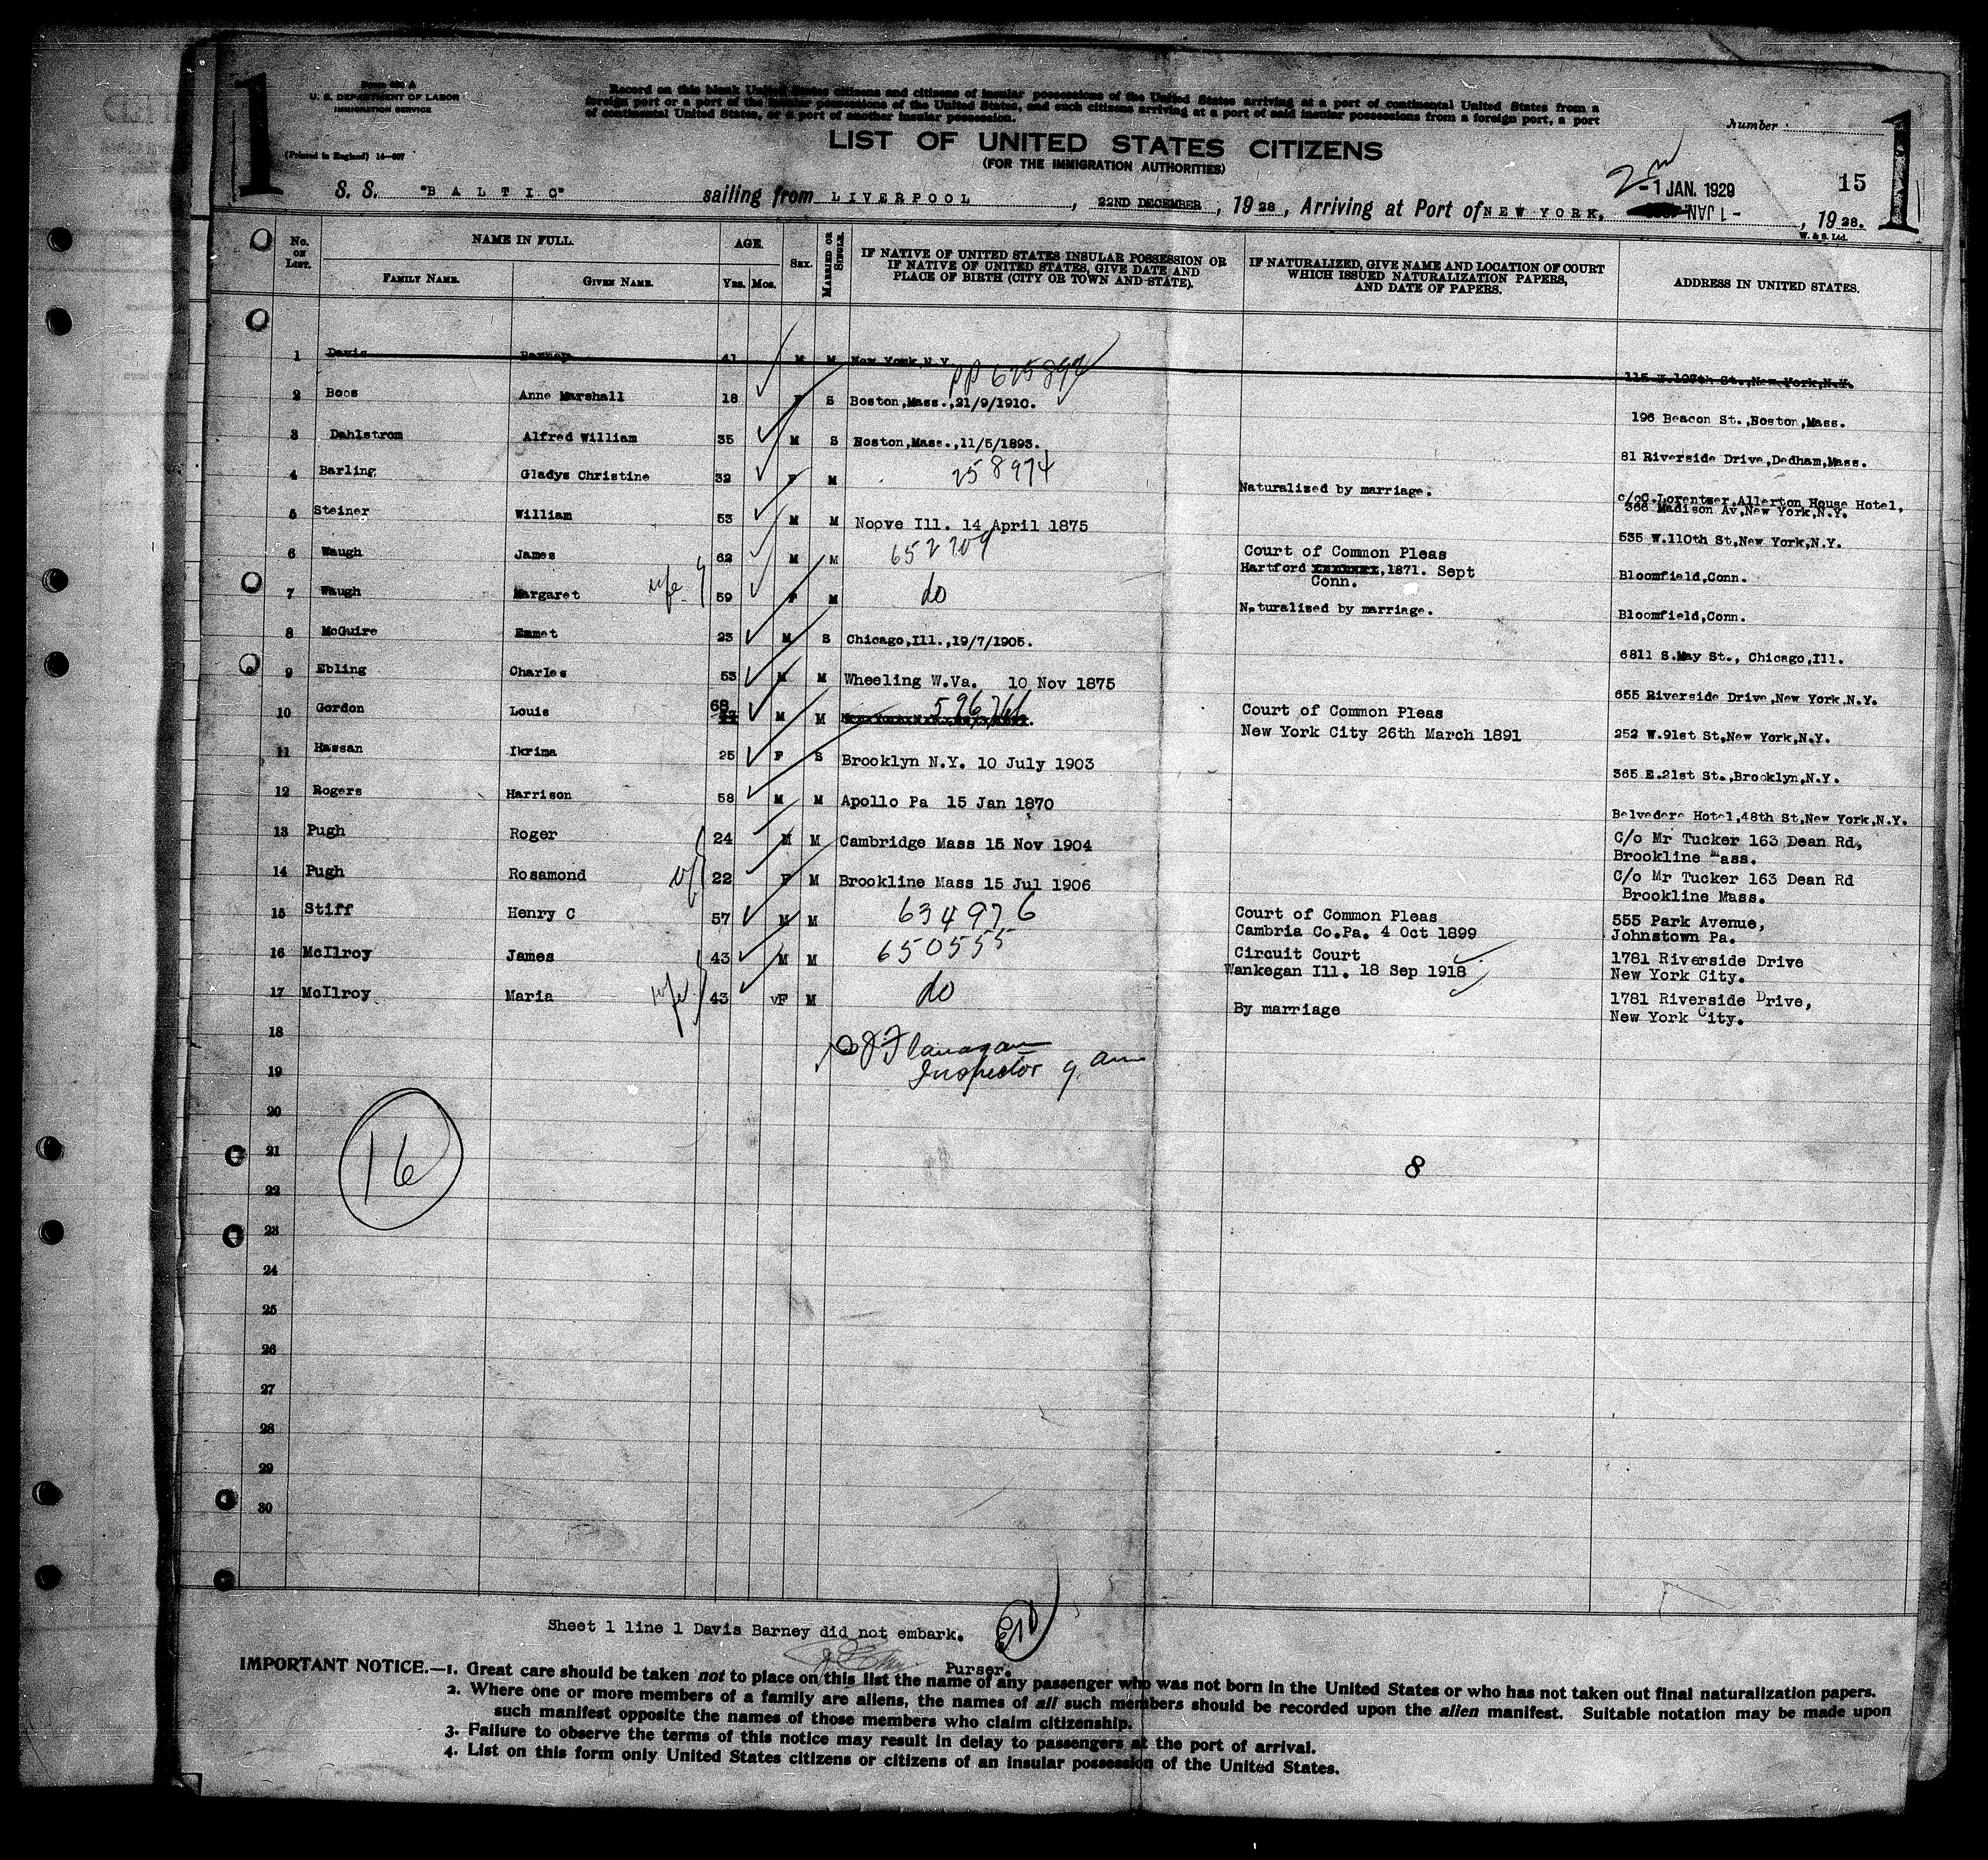 1
Form 630 A
U. S. DEPARTMENT OF LABOR
IMMIGRATION SERVICE
(Printed in England) 14—607
Record on this blank United States citizens and citizens of insular possessions of the United States arriving at a port of continental United States from a
foreign port or a port of the insular possessions of the United States, and such citizens arriving at a port of said insular possessions from a foreign port, a port
of continental United States, or a port of another insular possession.
Number
1
LIST OF UNITED STATES CITIZENS
(FOR THE IMMIGRATION AUTHORITIES)
2nd
-1 JAN. 1929
15
S. S. "BALTIC" sailing from LIVERPOOL, 22ND DECEMBER, 1928, Arriving at Port of NEW YORK. -1 JAN, 1928.
W. & S. Ltd.
No. on List. NAME IN FULL. AGE. Sex. Married or Single. IF NATIVE OF UNITED STATES INSULAR POSSESSION OR IF NATIVE OF UNITED STATES, GIVE DATE AND PLACE OF BIRTH (CITY OR TOWN AND STATE). IF NATURALIZED, GIVE NAME AND LOCATION OF COURT WHICH ISSUED NATURALIZATION PAPERS, AND DATE OF PAPERS. ADDRESS IN UNITED STATES.
Family Name. Given Name. Yrs. Mos.
1 Davis Barney 41 M M New York,N.Y. 115 W.107th St.,New York,N.Y.
PP 625892
2 Boos Anne Marshall 18 F S Boston,Mass.,21/9/1910. 196 Beacon St.,Noston,Mass.
3 Dahlstrom Alfred William 35 M S Noston,Mass.,11/5/1893. 81 Riverside Drive,Dedham,Mass.
4 Barling Gladys Christine 32 F M 258974 Naturalized by marriage. c/oC.Lorentzer,Allerton House Hotel,
366 Madison Av,New York,N.Y.
5 Steiner William 53 M M Noove Ill. 14 April 1875 535 W.110th St,New York,N.Y.
6 Waugh James 62 M M 652209 Court of Common Pleas
Hartford xxxxxxx,1871. Sept
Conn.
Bloomfield,Conn.
7 Waugh Margaret wife 59 F M do Naturalized by marriage. Bloomfield,Conn.
8 McGuire Emmet 23 M S Chicago,Ill.,19/7/1905. 6811 S.May St., Chicago,Ill.
9 Ebling Charles 53 M M Wheeling W.Va. 10 Nov 1875 655 Riverside Drive,New York,N.Y.
10 Gordon Louis 68 M M 596761 Court of Common Pleas
New York City 26th March 1891
252 W.91st St,New York,N.Y.
11 Hassan Ikrima 25 F S Brooklyn N.Y. 10 July 1903 365 E.21st St.,Brooklyn,N.Y.
12 Rogers Harrison 58 M M Apollo Pa 15 Jan 1870 Belvedere Hotel,48th St,New York,N.Y.
13 Pugh Roger 24 M M Cambridge Mass 15 Nov 1904 C/o Mr Tucker 163 Dean Rd,
Brookline Mass.
14 Pugh Rosamond 22 F M Brookline Mass 15 Jul 1906 C/o Mr Tucker 163 Dean Rd
Brookline Mass.
15 Stiff Henry C 57 M M 634976 Court of Common Pleas
Cambria Co.Pa. 4 Oct 1899
555 Park Avenue,
Johnstown Pa.
16 McIlroy James 43 M M 650555 Circuit Court
Wankegan Ill. 18 Sep 1918
1781 Riverside Drive
New York City.
17 McIlroy Maria wife 43 vF M do By marriage 1781 Riverside Drive,
New York City.
18
Flanagan
Inspector
19
20
16
21
8
22
23
24
25
26
27
28
29
30
Sheet 1 line 1 Davis Barney did not embark.
Purser.
IMPORTANT NOTICE.—1. Great care should be taken not to place on this list the name of any passenger who was not born in the United States or who has not taken out final naturalization papers.
2. Where one or more members of a family are aliens, the names of all such members should be recorded upon the alien manifest. Suitable notation may be made upon
such manifest opposite the names of those members who claim citizenship.
3. Failure to observe the terms of this notice may result in delay to passengers at the port of arrival.
4. List on this form only United States citizens or citizens of an insular possession of the United States.